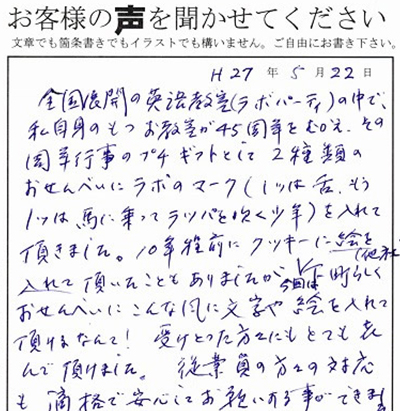 お客様の声を聞かせてください
文章でも箇条書きでもイラストでも構いません。ご自由にお書き下さい。
H27年5月22日
全国展開の英語教室(ラボパーティ)の中で、
私自身のもつお教室が45周年をむかえ、その
周年行事のプチギフトとして2種類の
おせんべいにラボのマーク(1つは舌、もう
1つは馬に乗ってラッパを吹く少年)を入れて
頂きました。10年程前にクッキーに絵を(他社)
入れて頂いたこともありましたが、今回は町らしく
おせんべいにこんな風に文字や絵を入れて
頂けるなんて!受けとった方々にもとても喜
んで頂けました。従業員の方々の対応
も適格で安心してお願いする事ができま